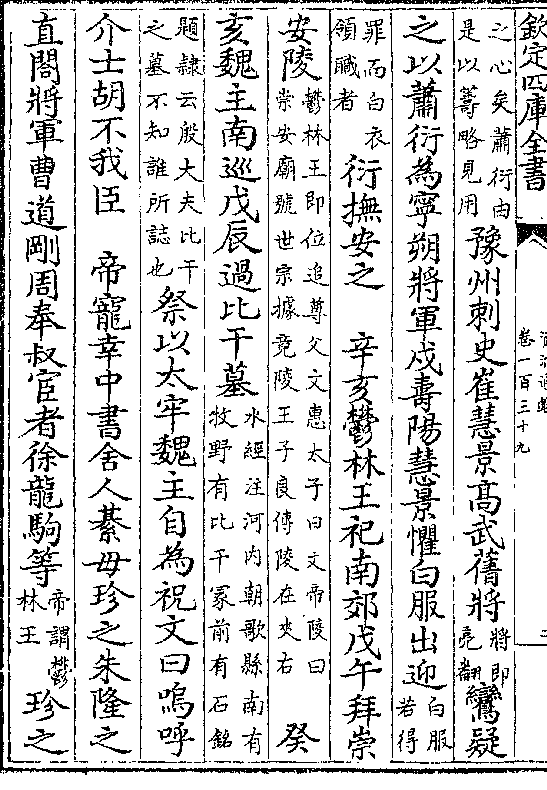 欽定四庫全書
資治通鑑
卷一百三十九
之心矣蕭衍由
是以籌略見用
豫州刺史崔慧景高武舊將
將即
亮翻
鸞疑
之以蕭衍為寧朔將軍戍壽陽慧景懼白服出迎
白服
若得
罪而白衣
領職者
衍撫安之 辛亥鬱林王祀南郊戊午拜崇
安陵
鬱林王即位追尊父文惠太子曰文帝陵曰
崇安廟號世宗據竟陵王子良傳陵在夾右
癸
亥魏主南巡戊辰過比干墓
水經注河内朝歌縣南有
牧野有比干冢前有石銘
題隸云殷大夫比干
之墓不知誰所誌也
祭以太牢魏主自為祝文曰嗚呼
介士胡不我臣 帝寵幸中書舍人綦毋珍之朱隆之
直閤將軍曹道剛周奉叔宦者徐龍駒等
帝謂鬱
林王
珍之